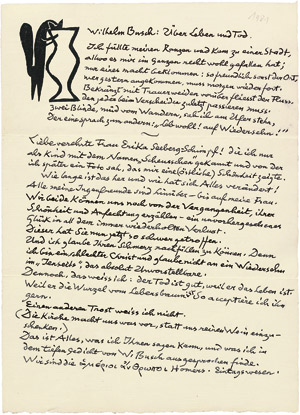 1971
Wilhelm Busch: Über Leben und Tod.
Ich füllte meinen Ranzen und kam zu einer Stadt,
allwo es mir im ganzen recht wohl gefallen hat;
nur eines macht beklommen: so freundlich sonst der Ort,
wer gestern angekommen, muss morgen wieder fort.
Bekränzt mit Trauerweiden vorüber fliesst der Fluss,
den jeder beim Verscheiden zuletzt passieren muss.
zwei Blinde, müd vom Wandern, sah ich am Ufer stehn,
Der eine sprach zum andern: „Leb wohl! auf Wiedersehn!"
Liebe verehrte Frau Erika
die ich nur
als Kind mit dem Namen gekannt und von der
ich später ein Foto sah, das mir eine Schönheit zeigte.
Wie lange ist das her und wie hat sich Alles verändert!
Alle meine Jugendfreunde sind hinüber – bis auf meine Frau.
Wir beide können uns noch von der Vergangenheit, ihrer
Schönheit und Anfechtung erzählen – ein unvorhergesehenes
Glück in all dem immer wiederholten Verlust.
Dieser hat Sie nun jetzt so schwer getroffen.
Und ich glaube Ihren Schmerz nachfühlen zu können. Denn
ich bin ein schlechter Christ und glaube nicht an ein Wiedersehn
im „Jenseits", das absolut Unvorstellbare.
Dennoch, das weiss ich: der Tod ist gut, weil er das Leben ist.
Weil er die Wurzel vom Lebensbaum ist. So acceptiere ich ihn
gern.
Einen anderen Trost weiss ich nicht.
(Die Kirche macht uns was vor, statt uns reinen Wein einzu-
schenken.)
Das ist Alles, was ich Ihnen sagen kann, und was ich in
dem tiefen Gedicht von W. Busch ausgesprochen finde.
Wir sind die Homers. Eintagswesen.